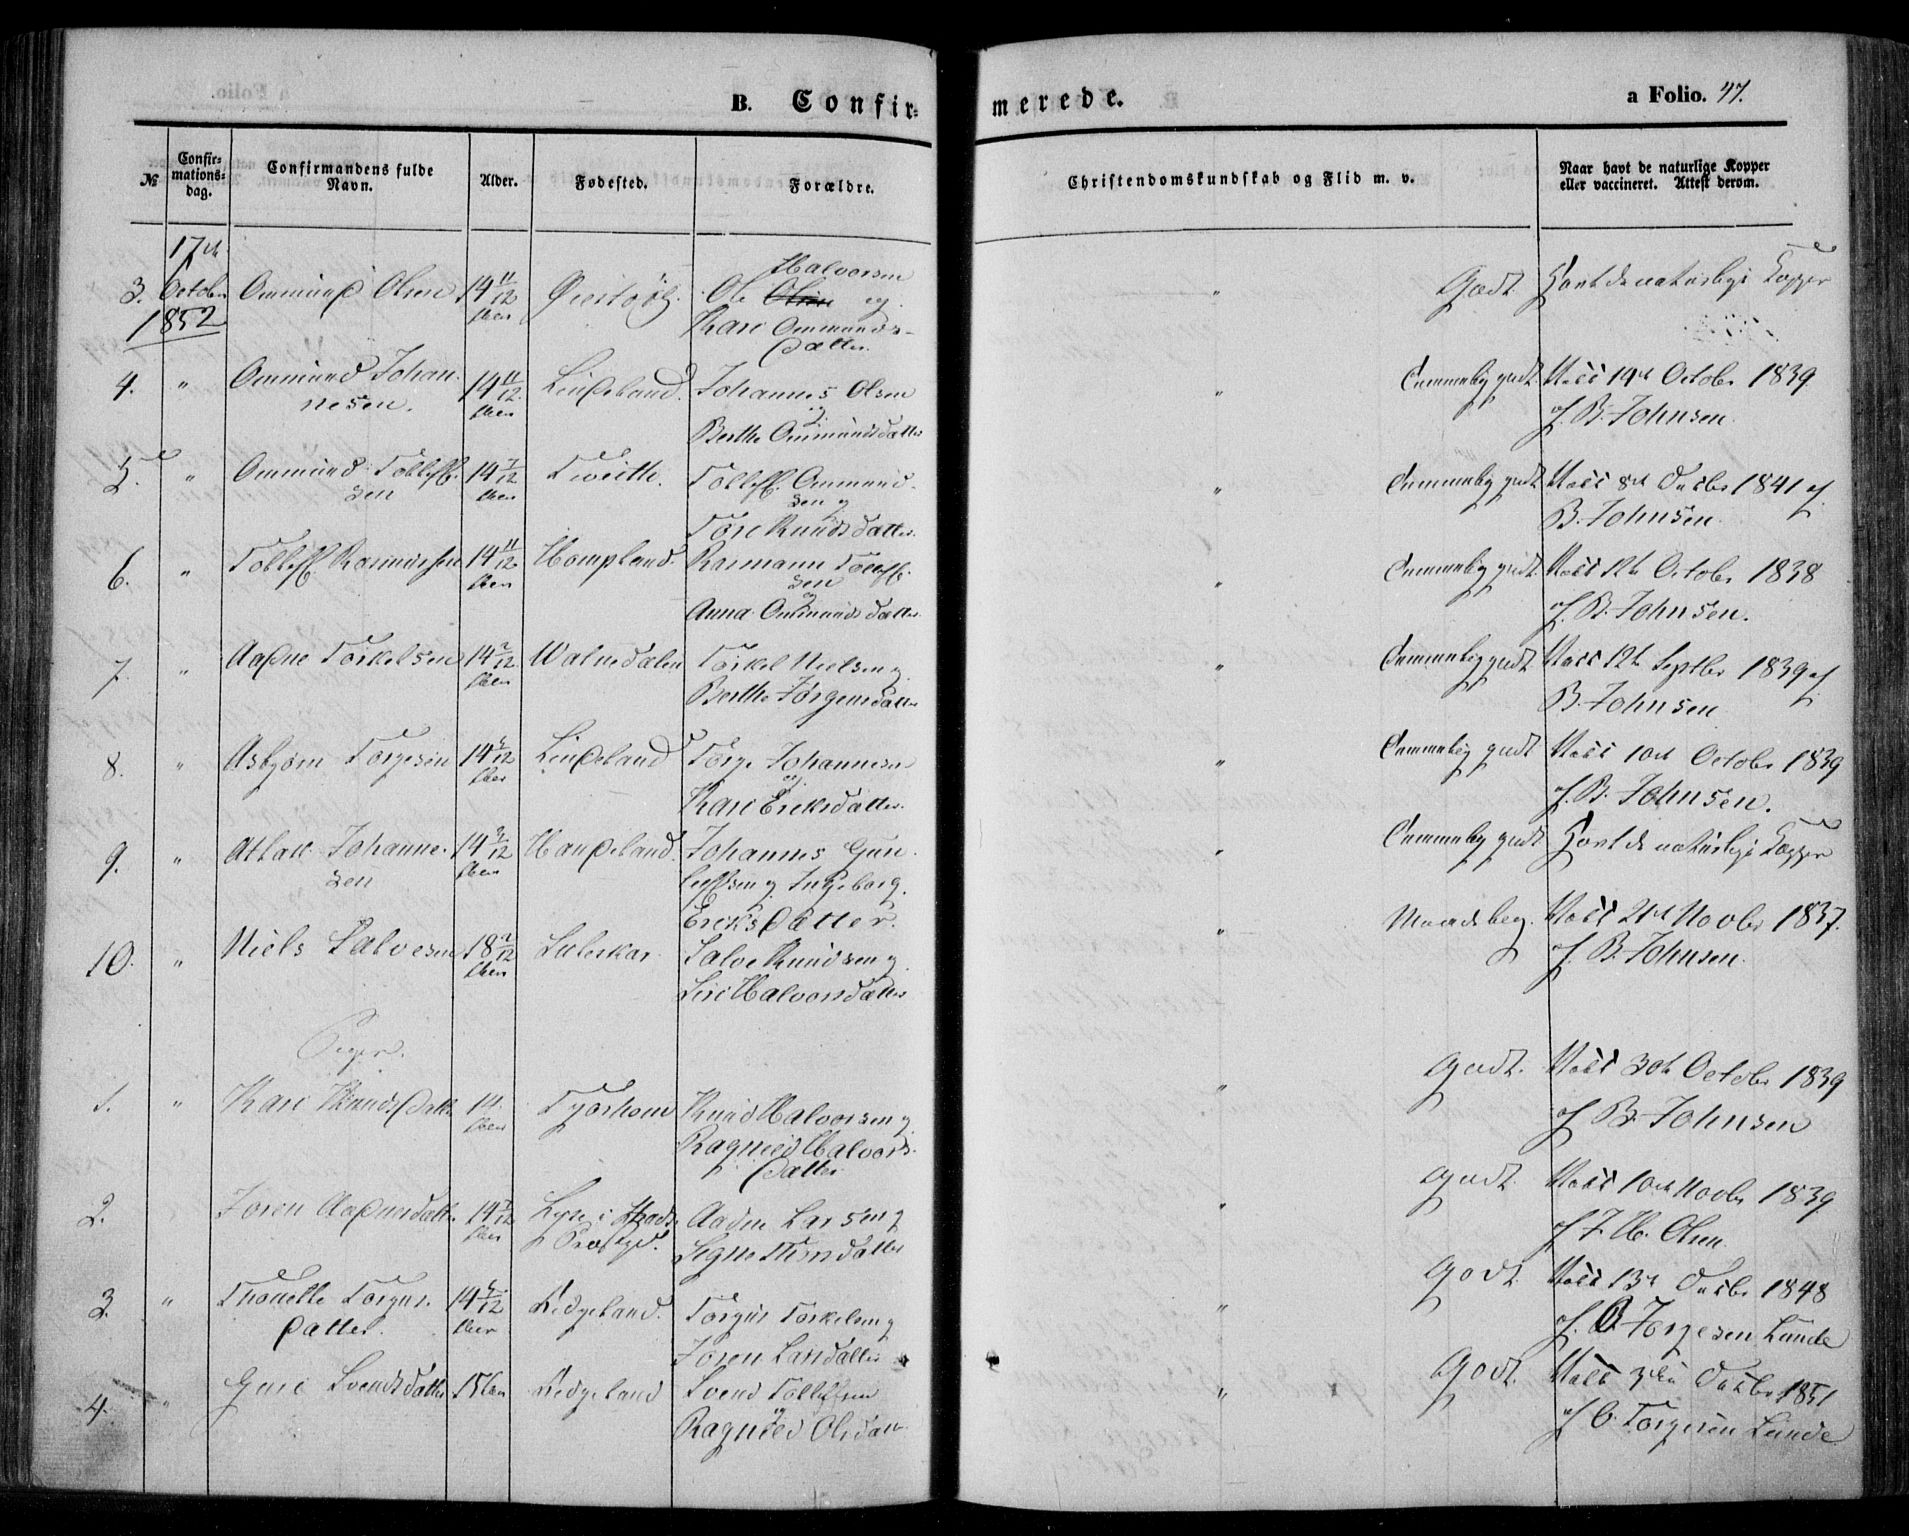 B. Confir=
merede.
a Folio. 47.
№
Confir=
mations=
dag.
Confirmandens fulde
Navn.
Alder.
Fødested.
Forældre.
Christendomskundskab og Flid m. v.
Naar havt de naturlige Kopper
eller vaccineret. Attest derom.
17de
October
1852
3. Ommund Olsen 14 11/12 Ole Halvorsen og
Kari Ommunds-
datter.
Godt. Havt de naturlige Kopper
4. " Ommund Johan-
nesen. 14 11/12 Lindeland. Johannes Olsen
og
Berthe Ommundsdatter
" godt. Vacc 14de October 1839
af B. Johnsen.
5. " Ommund Tollefs-
sen 14 7/12 Tveith. Tollef Ommund-
sen og
Tore Knudsdatter.
" godt Vacc 8de 1841 af
B. Johnsen.
6. " Tollef Rasmussen 14 11/12 Hompland. Rasmann Tollef-
sen
og
Anna Ommundsdatter
" godt. Vacc 12te October 1838
af B. Johnsen.
7. " Aadne Torkelsen 14 2/12 Torkel Nielsen og
Berthe Jørgensdatter
" godt Vacc 12te Septbr 1839 af
B. Johnsen
8. " Asbjørn Torgesen 14 Lindeland Torge Johannesen
og
Kari Eriksdatter.
" godt Vacc 10de October 1839
af B. Johnsen.
9. " Atlak Johanne-
sen 14 Haugeland. Johannes Gun-
leifsen og Ingeborg
Eriksdatter.
" godt Havt de naturlige Kopper
10. " Niels Salvesen 18 2/12 Salve Knudsen og
Siri Halvorsdatter
" Maadelig. Vacc 21de Novbr 1837.
af B. Johnsen.
Piger.
1. " Kari Knudsdatter 14 Tjorhom Knud Halvorsen og
Ragnild Halvors-
datter
" Godt. Vacc 30te October 1839
af B. Johnsen
2. Joren Aadnesdatter 14 7/12 Aadne Larsen og
" Godt. Vacc 10de Novbr 1839
af Olsen
3. " Thonette Torgus-
datter. 14 Kedgeland. Torgus Torkelsen og
Joren Larsdatter
" Godt. Vacc 13de 1848
af O. Torgesen Lunde
4. " Guri Svendsdatter 15 Kedgeland Svend Tollefsen
og
Ragnild Olsdatter
" Godt. Vacc 3die 1851
af O. Torgersen Lunde